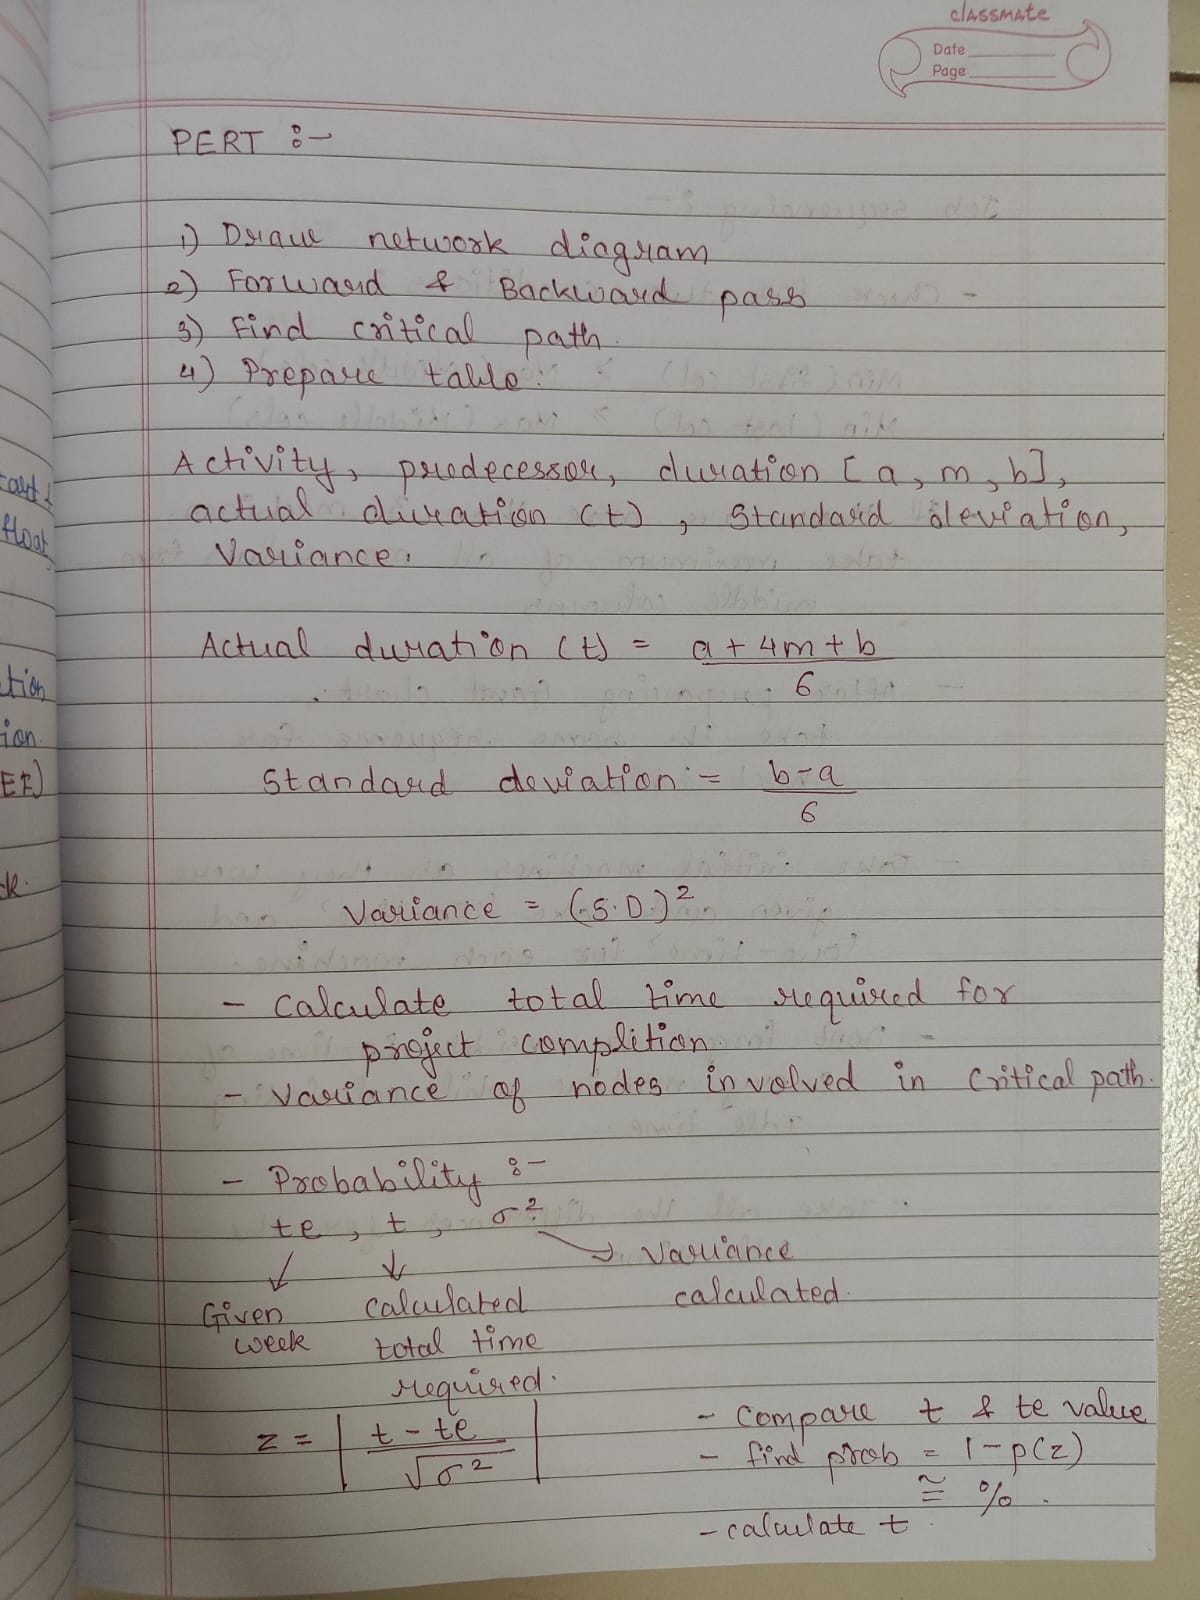 classmate
Date
Page
PERT :-
1) Draw network diagram
2) Forward & Backward pass
3) Find critical path.
4) Prepare table.
Activity, predecessor, duration [a, m, b],
actual duration (t), standard deviation,
Variance.
Actual duration (t) = a + 4m + b
6
Standard deviation = b - a
6
Variance = (S.D.)²
- Calculate total time required for
project complition.
- Variance of nodes involved in critical path.
- Probability :-
te, t, σ²
Variance
calculated.
Given
week
calculated
total time
required.
z = | t - te |
√σ²
- Compare t & te value
- find prob = 1 - p(z)
≅ %.
- calculate t.
tion
ion.
float
EF)